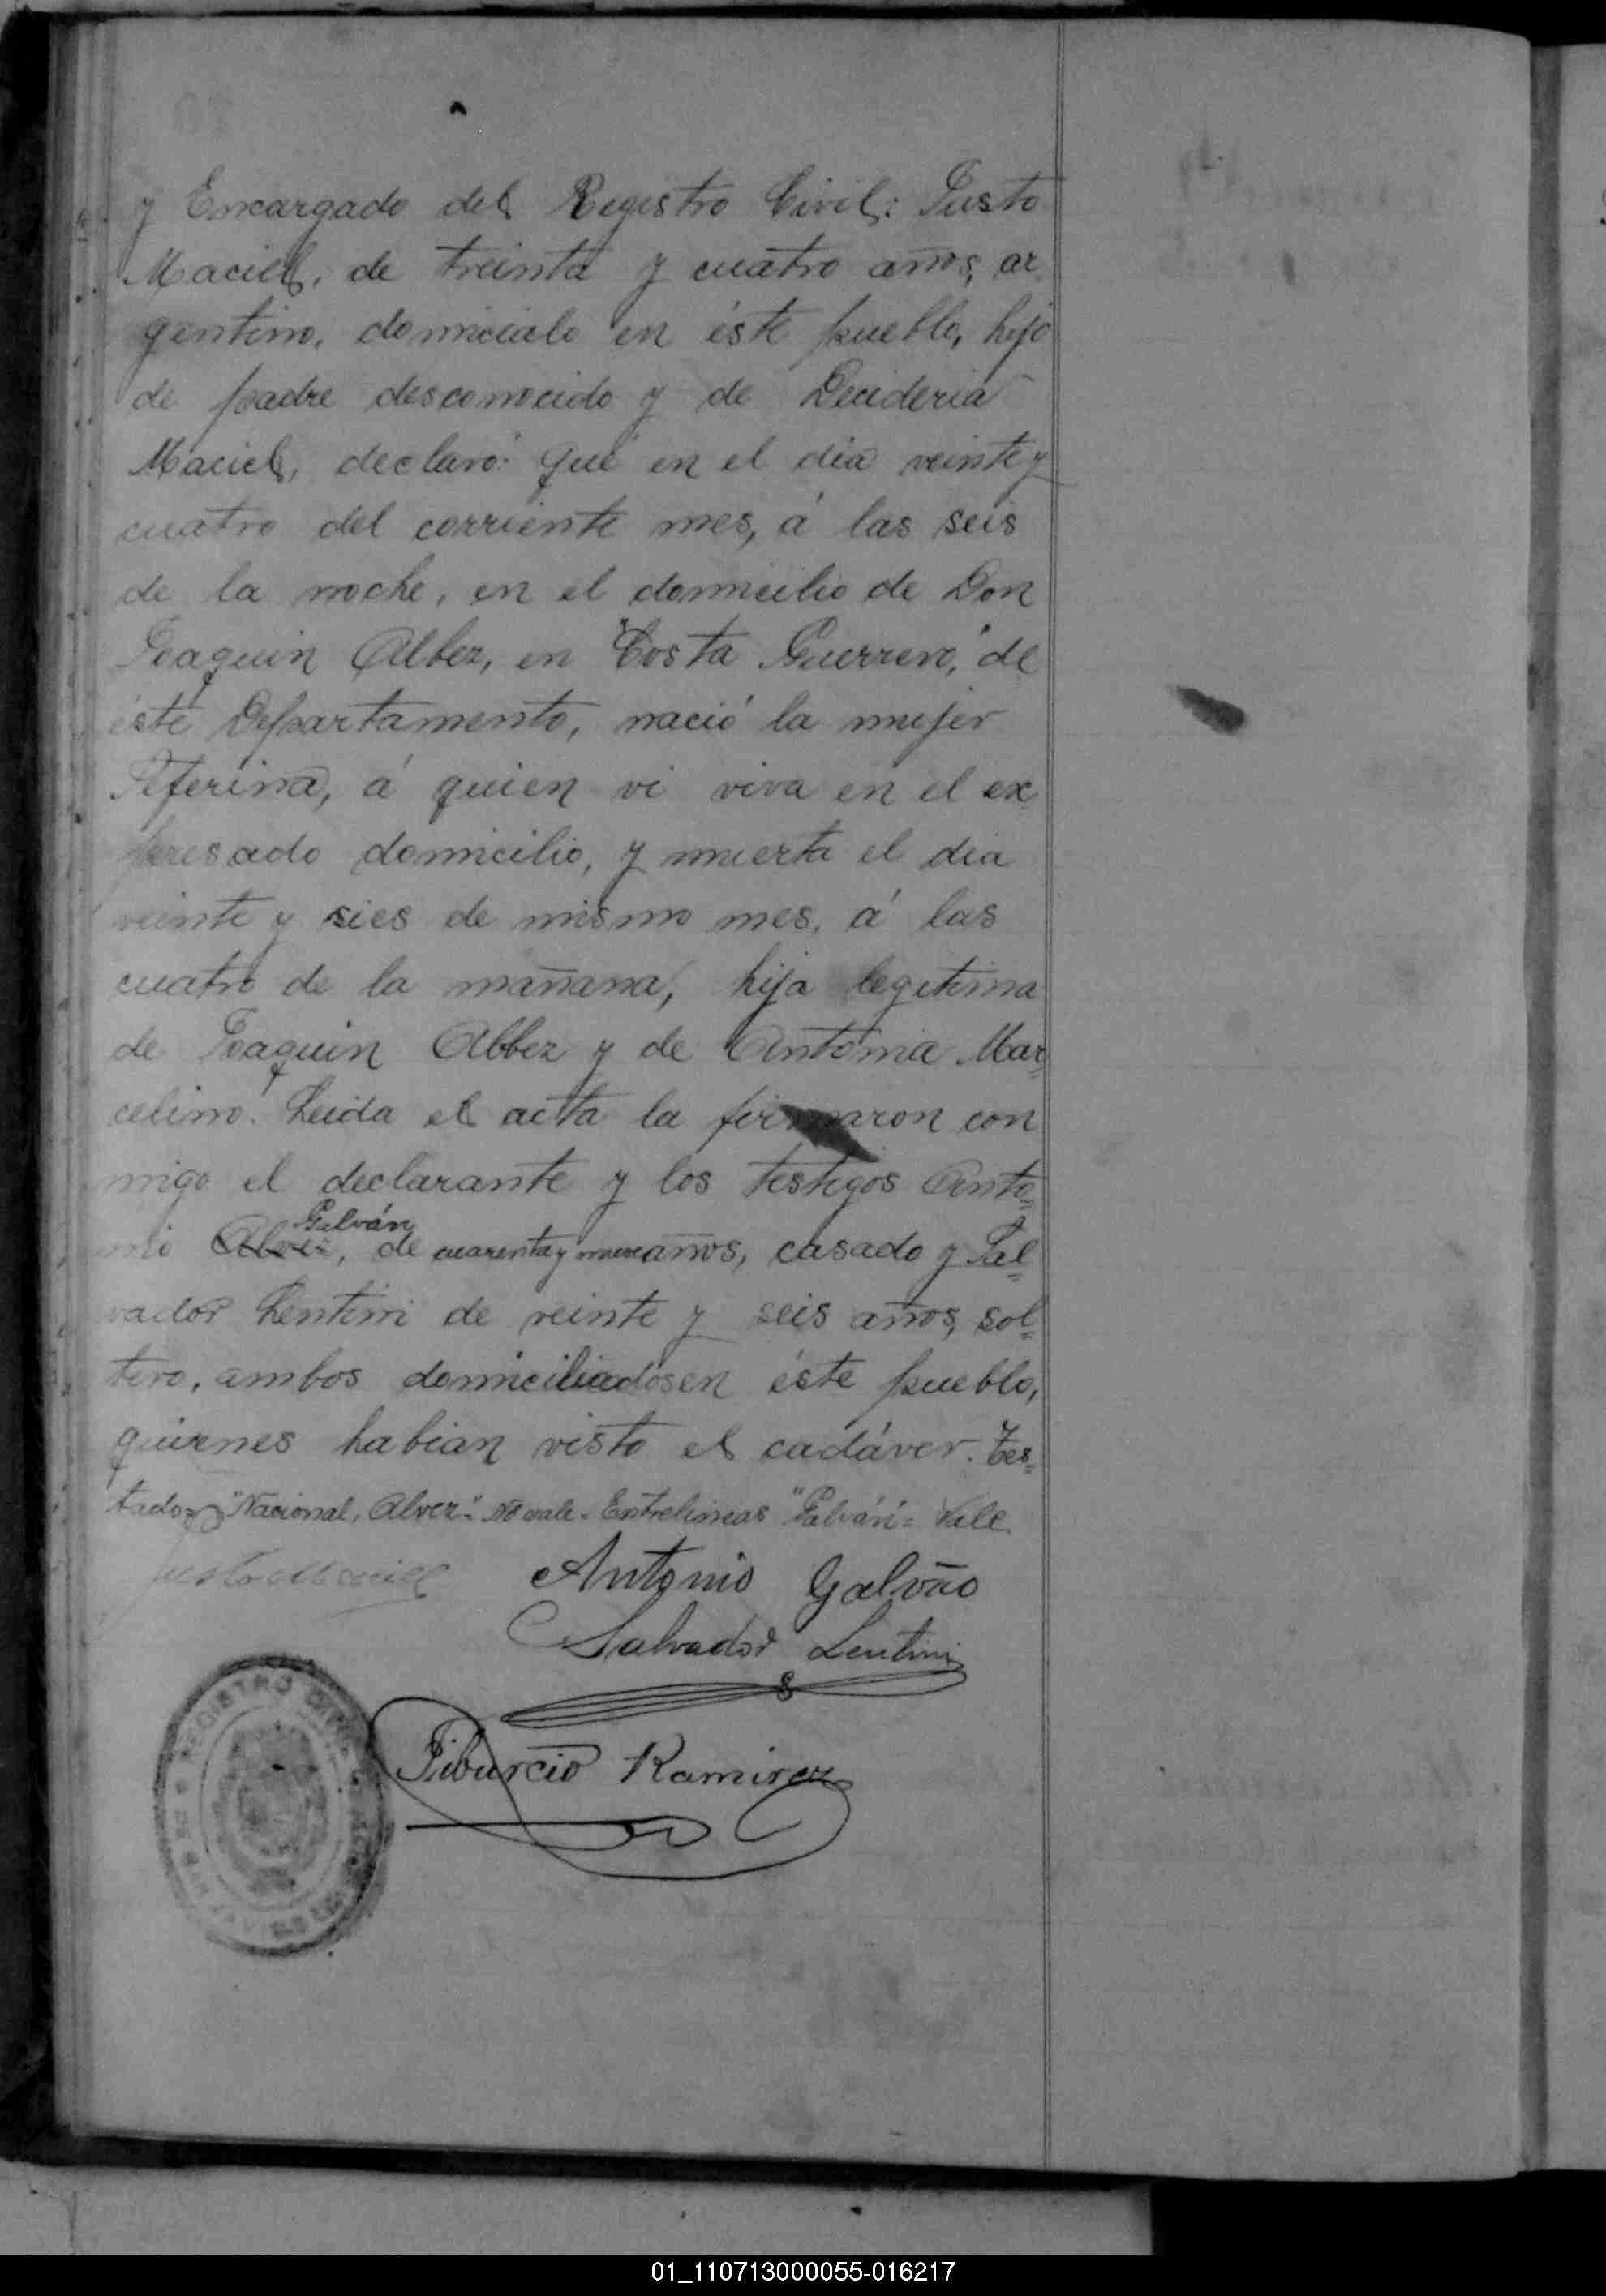 y Encargado del Registro Civil: Justo
Maciel, de treinta y cuatro años, ar
gentino, domicialo en éste pueblo, hijo
de padre desconocido y de Decideria
Maciel, declaró: Que en el dia veinte y
cuatro del corriente mes, á las seis
de la noche, en el domicilio de Don
Joaquin Alber, en "Costa Guerrero," de
éste Departamento, nació la mujer
Seferina, á quien vi viva en el ex
presado domicilio, y muerta el dia
veinte y sies de mismo mes, á las
cuatro de la mañana, hija legitima
de Joaquin Albez y de Antonia Mar=
celino. Leida el acta la firmaron con
migo el declarante y los testigos Anto=
Galván
nio Alvez, de cuarenta y nueve años, casado y Sal=
vador Lentini de veinte y seis años, sol=
tero, ambos domiciliados en éste pueblo,
quienes habian visto el cadáver. Tes=
tado "Nacional, Alvez" No vale. Entrelineas "Galván" = Vale
Justo Maciel Antonio Galvão
Salvador Lentini
Tiburcio Ramirez
REGISTRO CIVIL
01_110713000055-016217